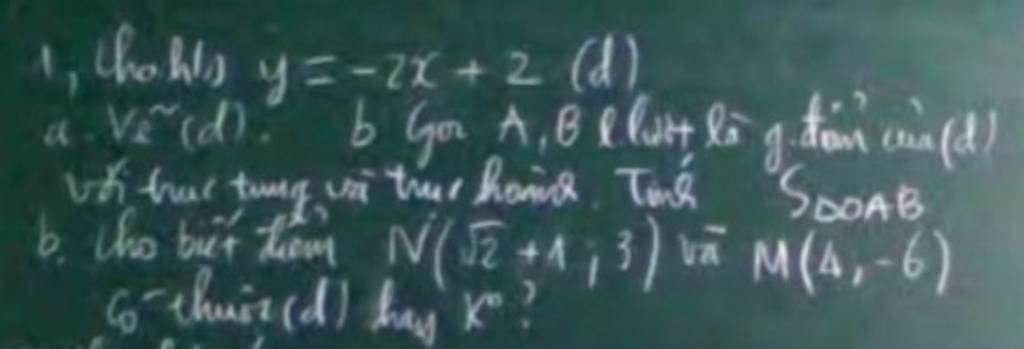 1, Cho h/s y = -2x + 2 (d)
a. Vẽ (d). b Gọi A, B lần lượt là g.điểm của (d)
với trục tung và trục hoành. Tính SΔOAB
b. Cho biết điểm N(√2 + 1 ; 3) và M(4, -6)
Có thuộc (d) hay K°?